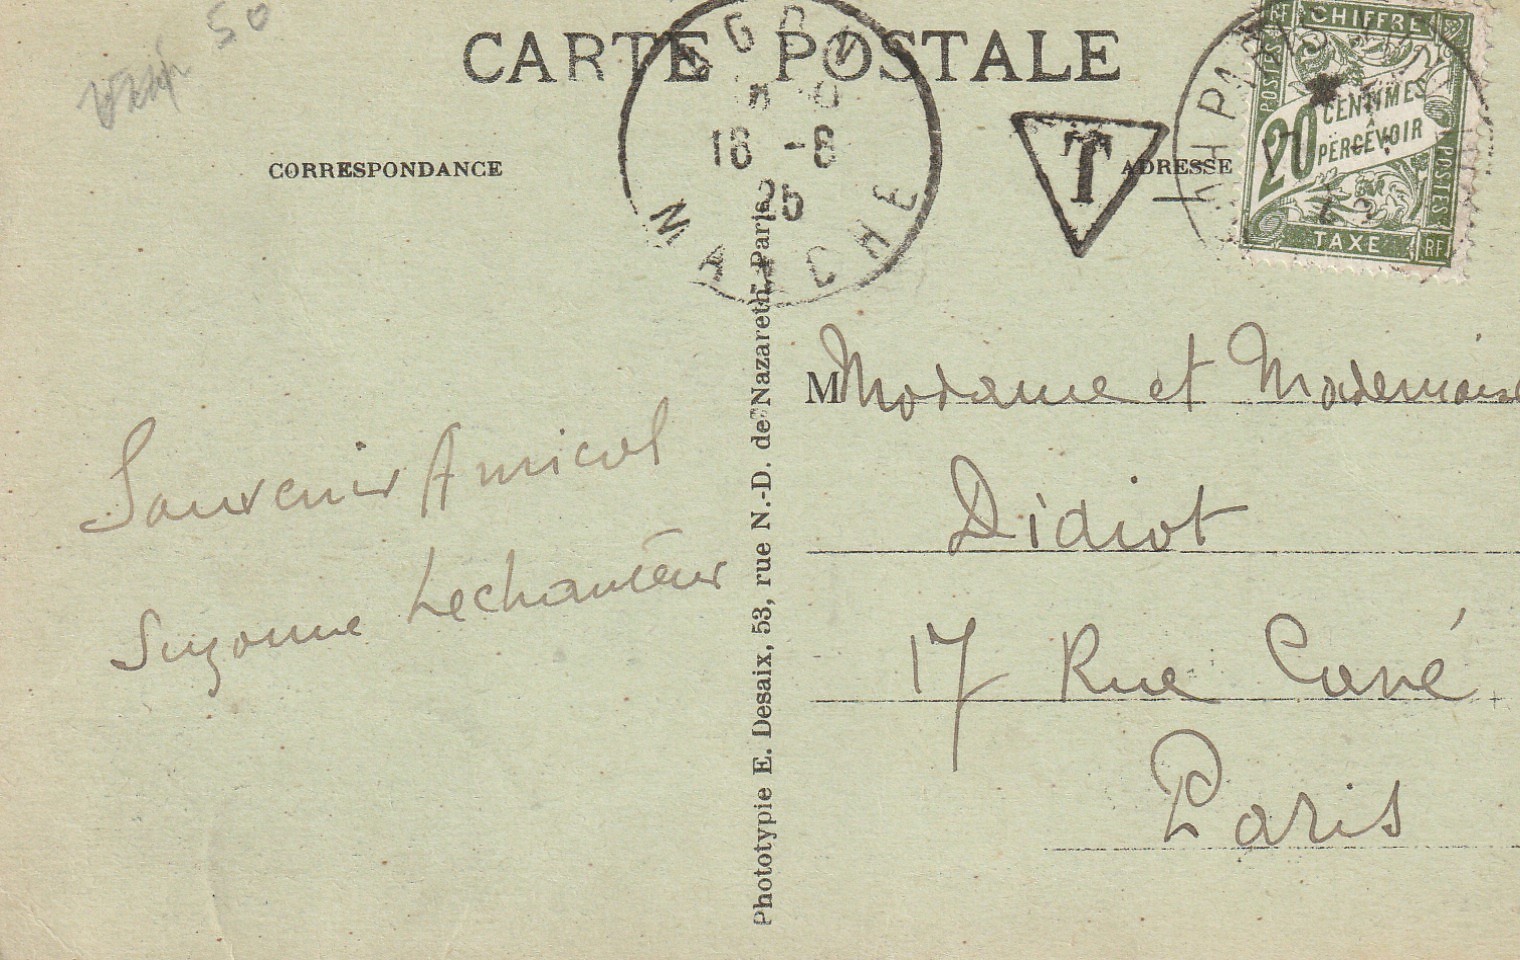 50
CARTE POSTALE
CORRESPONDANCE
ADRESSE
18 -8
25
MANCHE
T
PARIS
RF CHIFFRE
POSTES
20 CENTIMES
À PERCEVOIR
POSTES
TAXE RF
Souvenir Amical
Suzanne Lechanteur
M Madame et Mademoise
Didiot
17 Rue Cavé
Paris
Phototypie E. Desaix, 53, rue N.-D. de Nazareth, Paris